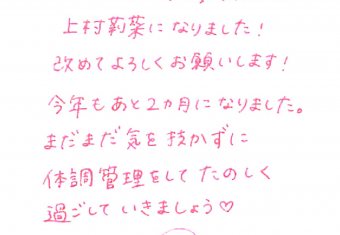 上村莉菜になりました!
改めてよろしくお願いします!
今年もあと2ヵ月になりました。
まだまだ気を抜かずに
体調管理をして たのしく
過ごして いきましょう♡